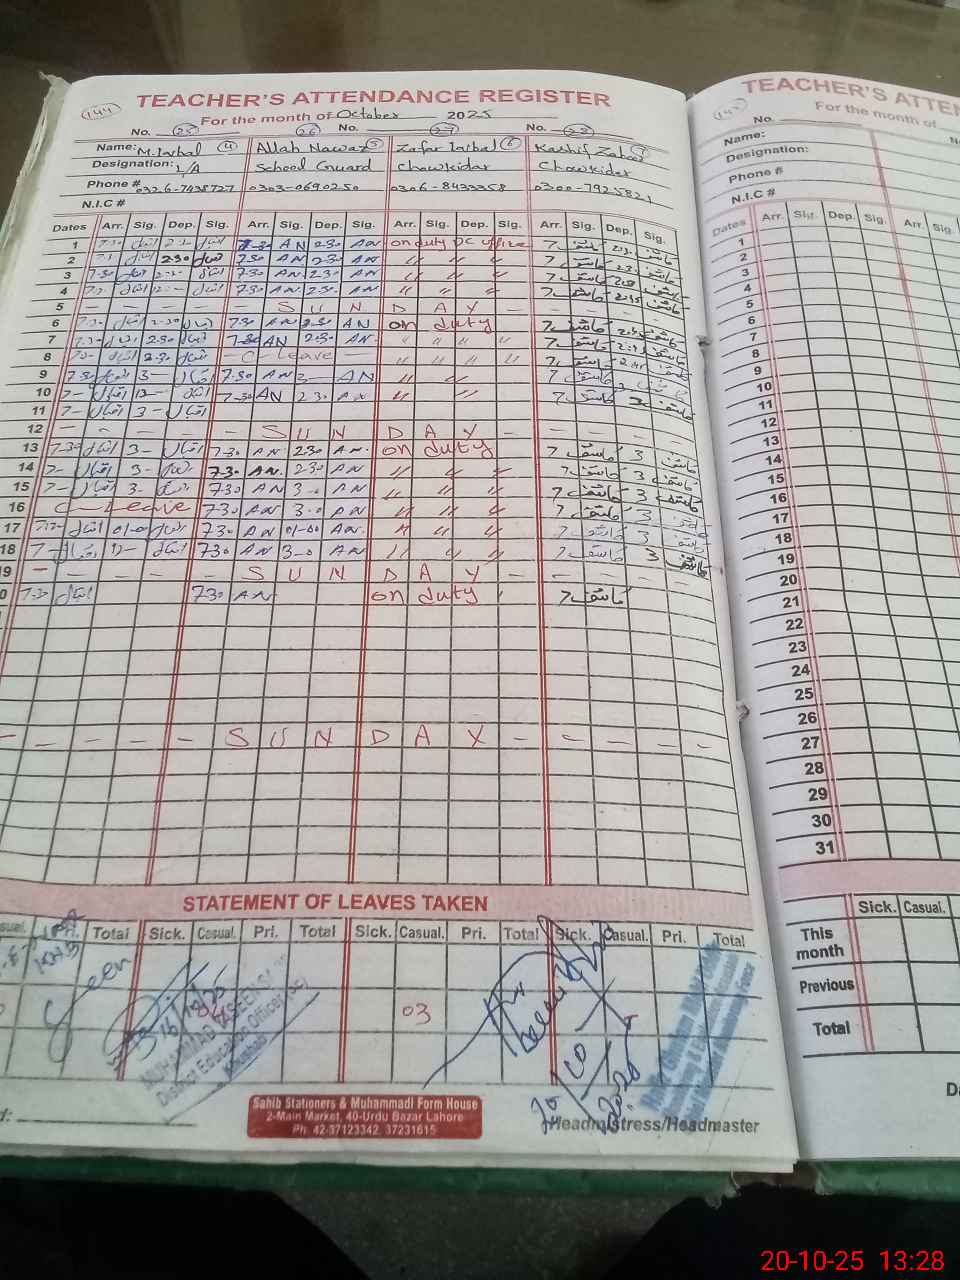 144
TEACHER'S ATTENDANCE REGISTER
For the month of October 2025
No. 25 26 No. 27 No. 28
Name: M.Iqbal 4 Allah Nawaz 5 Zafar Iqbal 6 Kashif Zahoor 7
Designation: L/A School Guard Chowkidar Chowkidar
Phone # 0326-7438727 0303-0690250 0306-8433358
N.I.C #
Dates Arr. Sig. Dep. Sig. Arr. Sig. Dep. Sig. Arr. Sig. Dep. Sig. Arr. Sig. Dep. Sig.
1 7-30 اقبال اقبال 7-30 AN 2-30 AN on duty DC office 7 کاشف کاشف
2 اقبال 2-30 اقبال 730 AN 2-30 AN " " " 7 کاشف کاشف
3 7-30 اقبال اقبال 730 AN 2-30 AN " " " 7 کاشف کاشف
4 اقبال 12- اقبال 730 AN 2-30 AN " " " 7 کاشف 2-15 کاشف
5 - - - - S U N D A Y - - - -
6 7-30 اقبال 2-30 اقبال 7-30 AN 2-30 AN on duty 7 کاشف کاشف
7 7-30 اقبال 2-30 اقبال 7-30 AN 2-30 AN " " " " 7 کاشف کاشف
8 اقبال 2-30 اقبال - C-Leave - " " " " 7 کاشف کاشف
9 7-30 اقبال 3- اقبال 7-30 AN 3- AN " " 7 کاشف 3 کاشف
10 7- اقبال 12- اقبال 7-30 AN 2-30 AN " " 7 کاشف کاشف
11 7- اقبال 3- اقبال
12 - - - - S U N D A Y - - - -
13 7-30 اقبال 3- اقبال 7-30 AN 2-30 AN. on duty 7 کاشف 3 کاشف
14 7- اقبال 3- اقبال 730 AN. 2-30 AN " " " 7 کاشف 3 کاشف
15 7- اقبال 3- اقبال 730 AN 3-0 AN " " " 7 کاشف 3 کاشف
16 C-Leave 730 AN 3-0 AN " " " 7 کاشف 3 کاشف
17 اقبال 01-0 اقبال 730 AN 01-00 AN. " " " 7 کاشف 3 کاشف
18 7- اقبال 12- اقبال 730 AN 3-0 AN " " " 7 کاشف 3 کاشف
19 - - - - S U N D A Y - - - -
0 7-30 اقبال 730 AN on duty 7 کاشف
- - - - - S U N D A Y - - - - -
STATEMENT OF LEAVES TAKEN
Pri. Total Sick. Casual. Pri. Total Sick. Casual. Pri. Total Sick. Casual. Pri. Total
Seen
03
District Education Officer
20/10/2025
Sahib Stationers & Muhammadi Form House
2-Main Market, 40-Urdu Bazar Lahore
Ph. 42-37123342, 37231615
Headmistress/Headmaster
TEACHER'S ATTEN
For the month of
No.
Name:
Designation:
Phone #
N.I.C #
Dates Arr. Sig. Dep. Sig. Arr. Sig.
1
2
3
4
5
6
7
8
9
10
11
12
13
14
15
16
17
18
19
20
21
22
23
24
25
26
27
28
29
30
31
Sick. Casual.
This month
Previous
Total
20-10-25 13:28